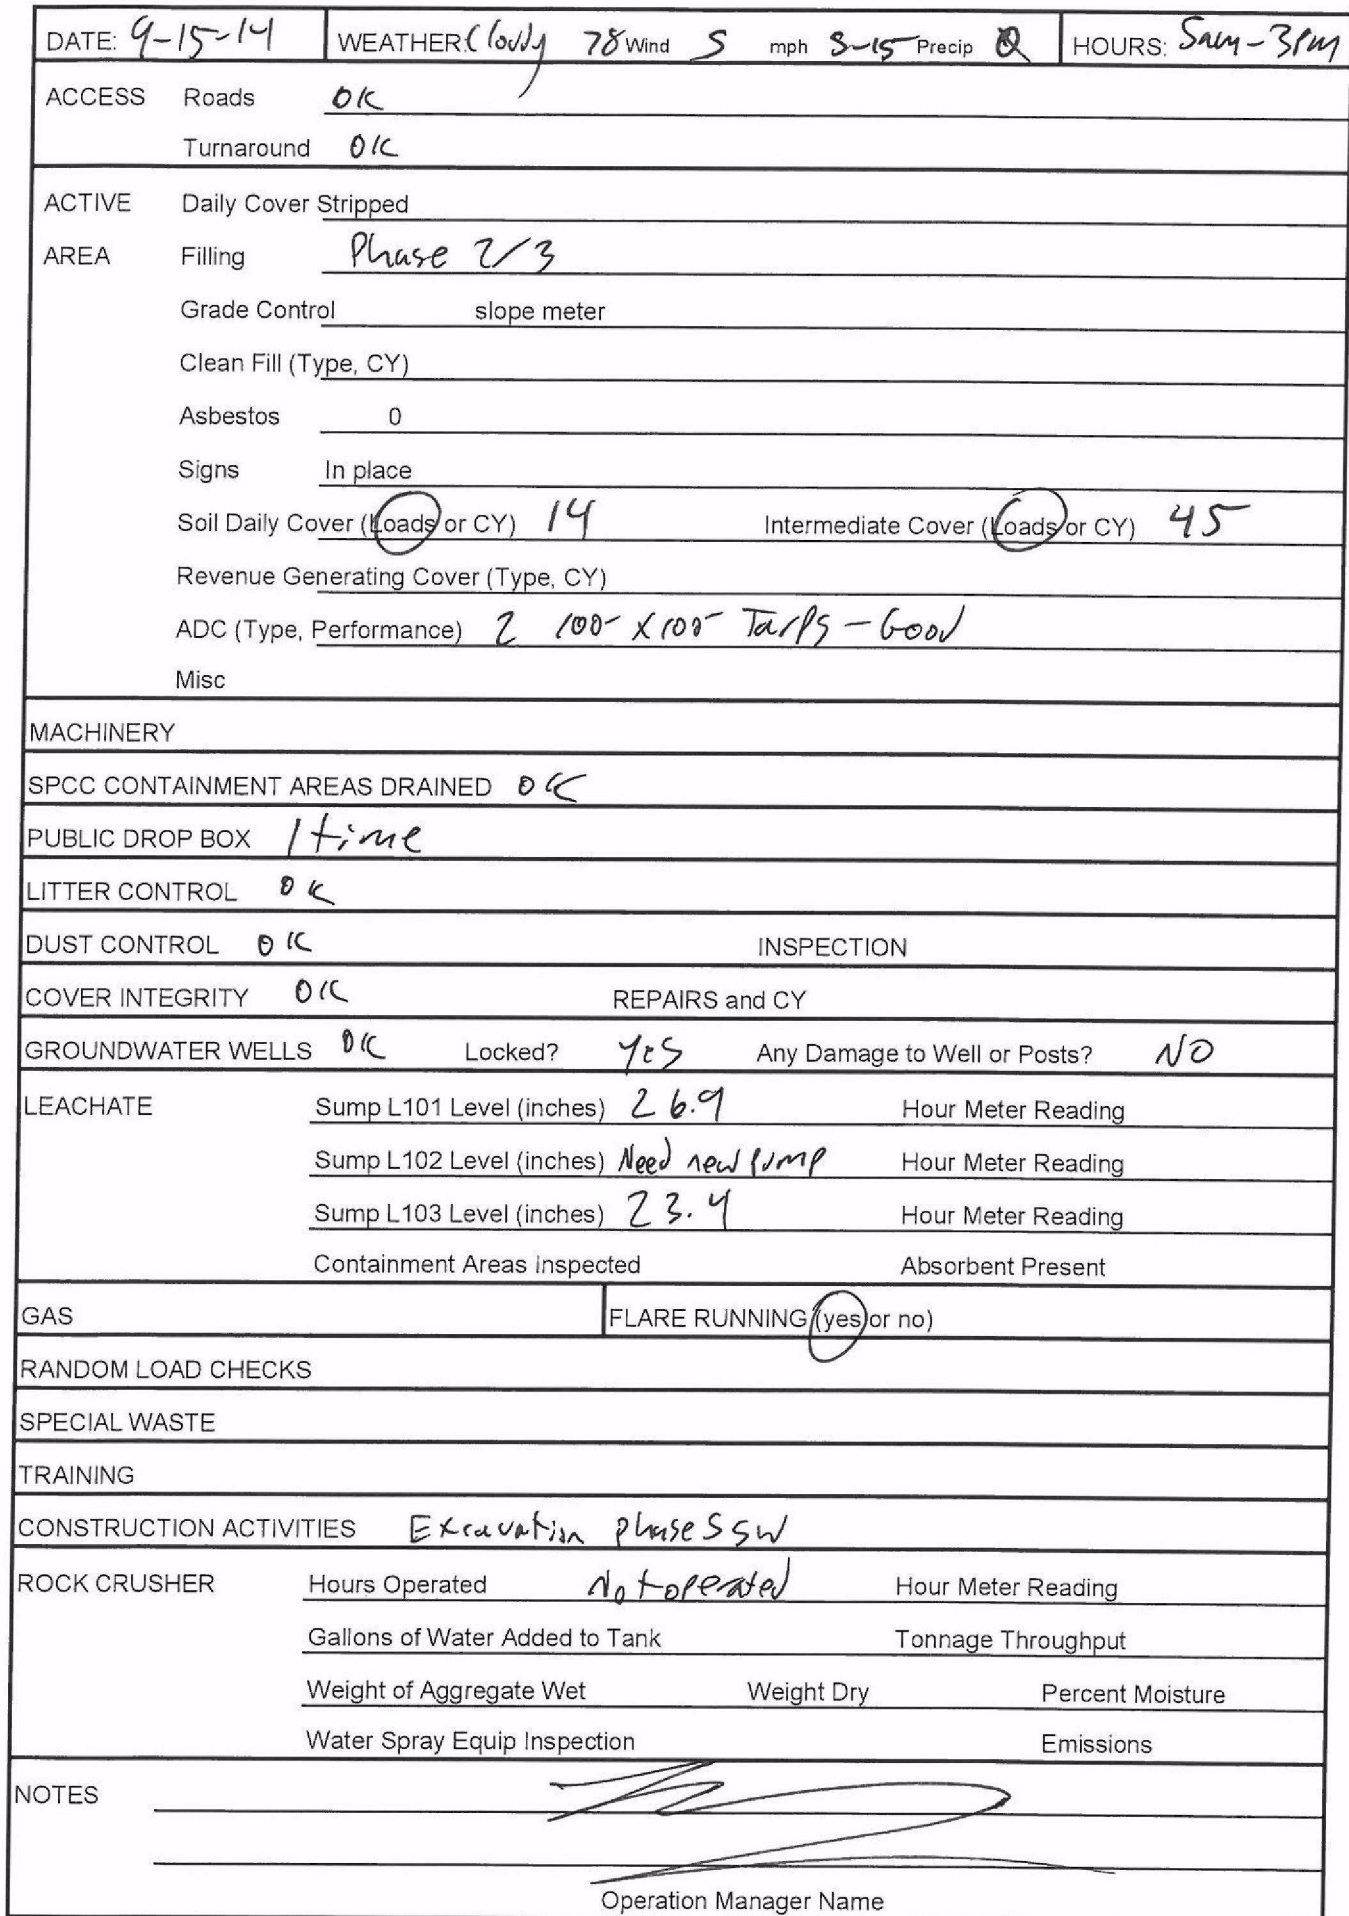 DATE: 9-15-14 WEATHER: Cloudy 78 Wind S mph 3-15 Precip 0 HOURS: 5am-3pm
ACCESS Roads OK
Turnaround OK
ACTIVE Daily Cover Stripped
AREA Filling Phase 2/3
Grade Control slope meter
Clean Fill (Type, CY)
Asbestos 0
Signs In place
Soil Daily Cover (Loads or CY) 14 Intermediate Cover (Loads or CY) 45
Revenue Generating Cover (Type, CY)
ADC (Type, Performance) 2 100 x 100 Tarps - Good
Misc
MACHINERY
SPCC CONTAINMENT AREAS DRAINED OK
PUBLIC DROP BOX 1 time
LITTER CONTROL OK
DUST CONTROL OK INSPECTION
COVER INTEGRITY OK REPAIRS and CY
GROUNDWATER WELLS OK Locked? Yes Any Damage to Well or Posts? NO
LEACHATE Sump L101 Level (inches) 26.9 Hour Meter Reading
Sump L102 Level (inches) Need new pump Hour Meter Reading
Sump L103 Level (inches) 23.4 Hour Meter Reading
Containment Areas Inspected Absorbent Present
GAS FLARE RUNNING (yes or no)
RANDOM LOAD CHECKS
SPECIAL WASTE
TRAINING
CONSTRUCTION ACTIVITIES Excavation phase 5 SW
ROCK CRUSHER Hours Operated Not operated Hour Meter Reading
Gallons of Water Added to Tank Tonnage Throughput
Weight of Aggregate Wet Weight Dry Percent Moisture
Water Spray Equip Inspection Emissions
NOTES
Operation Manager Name